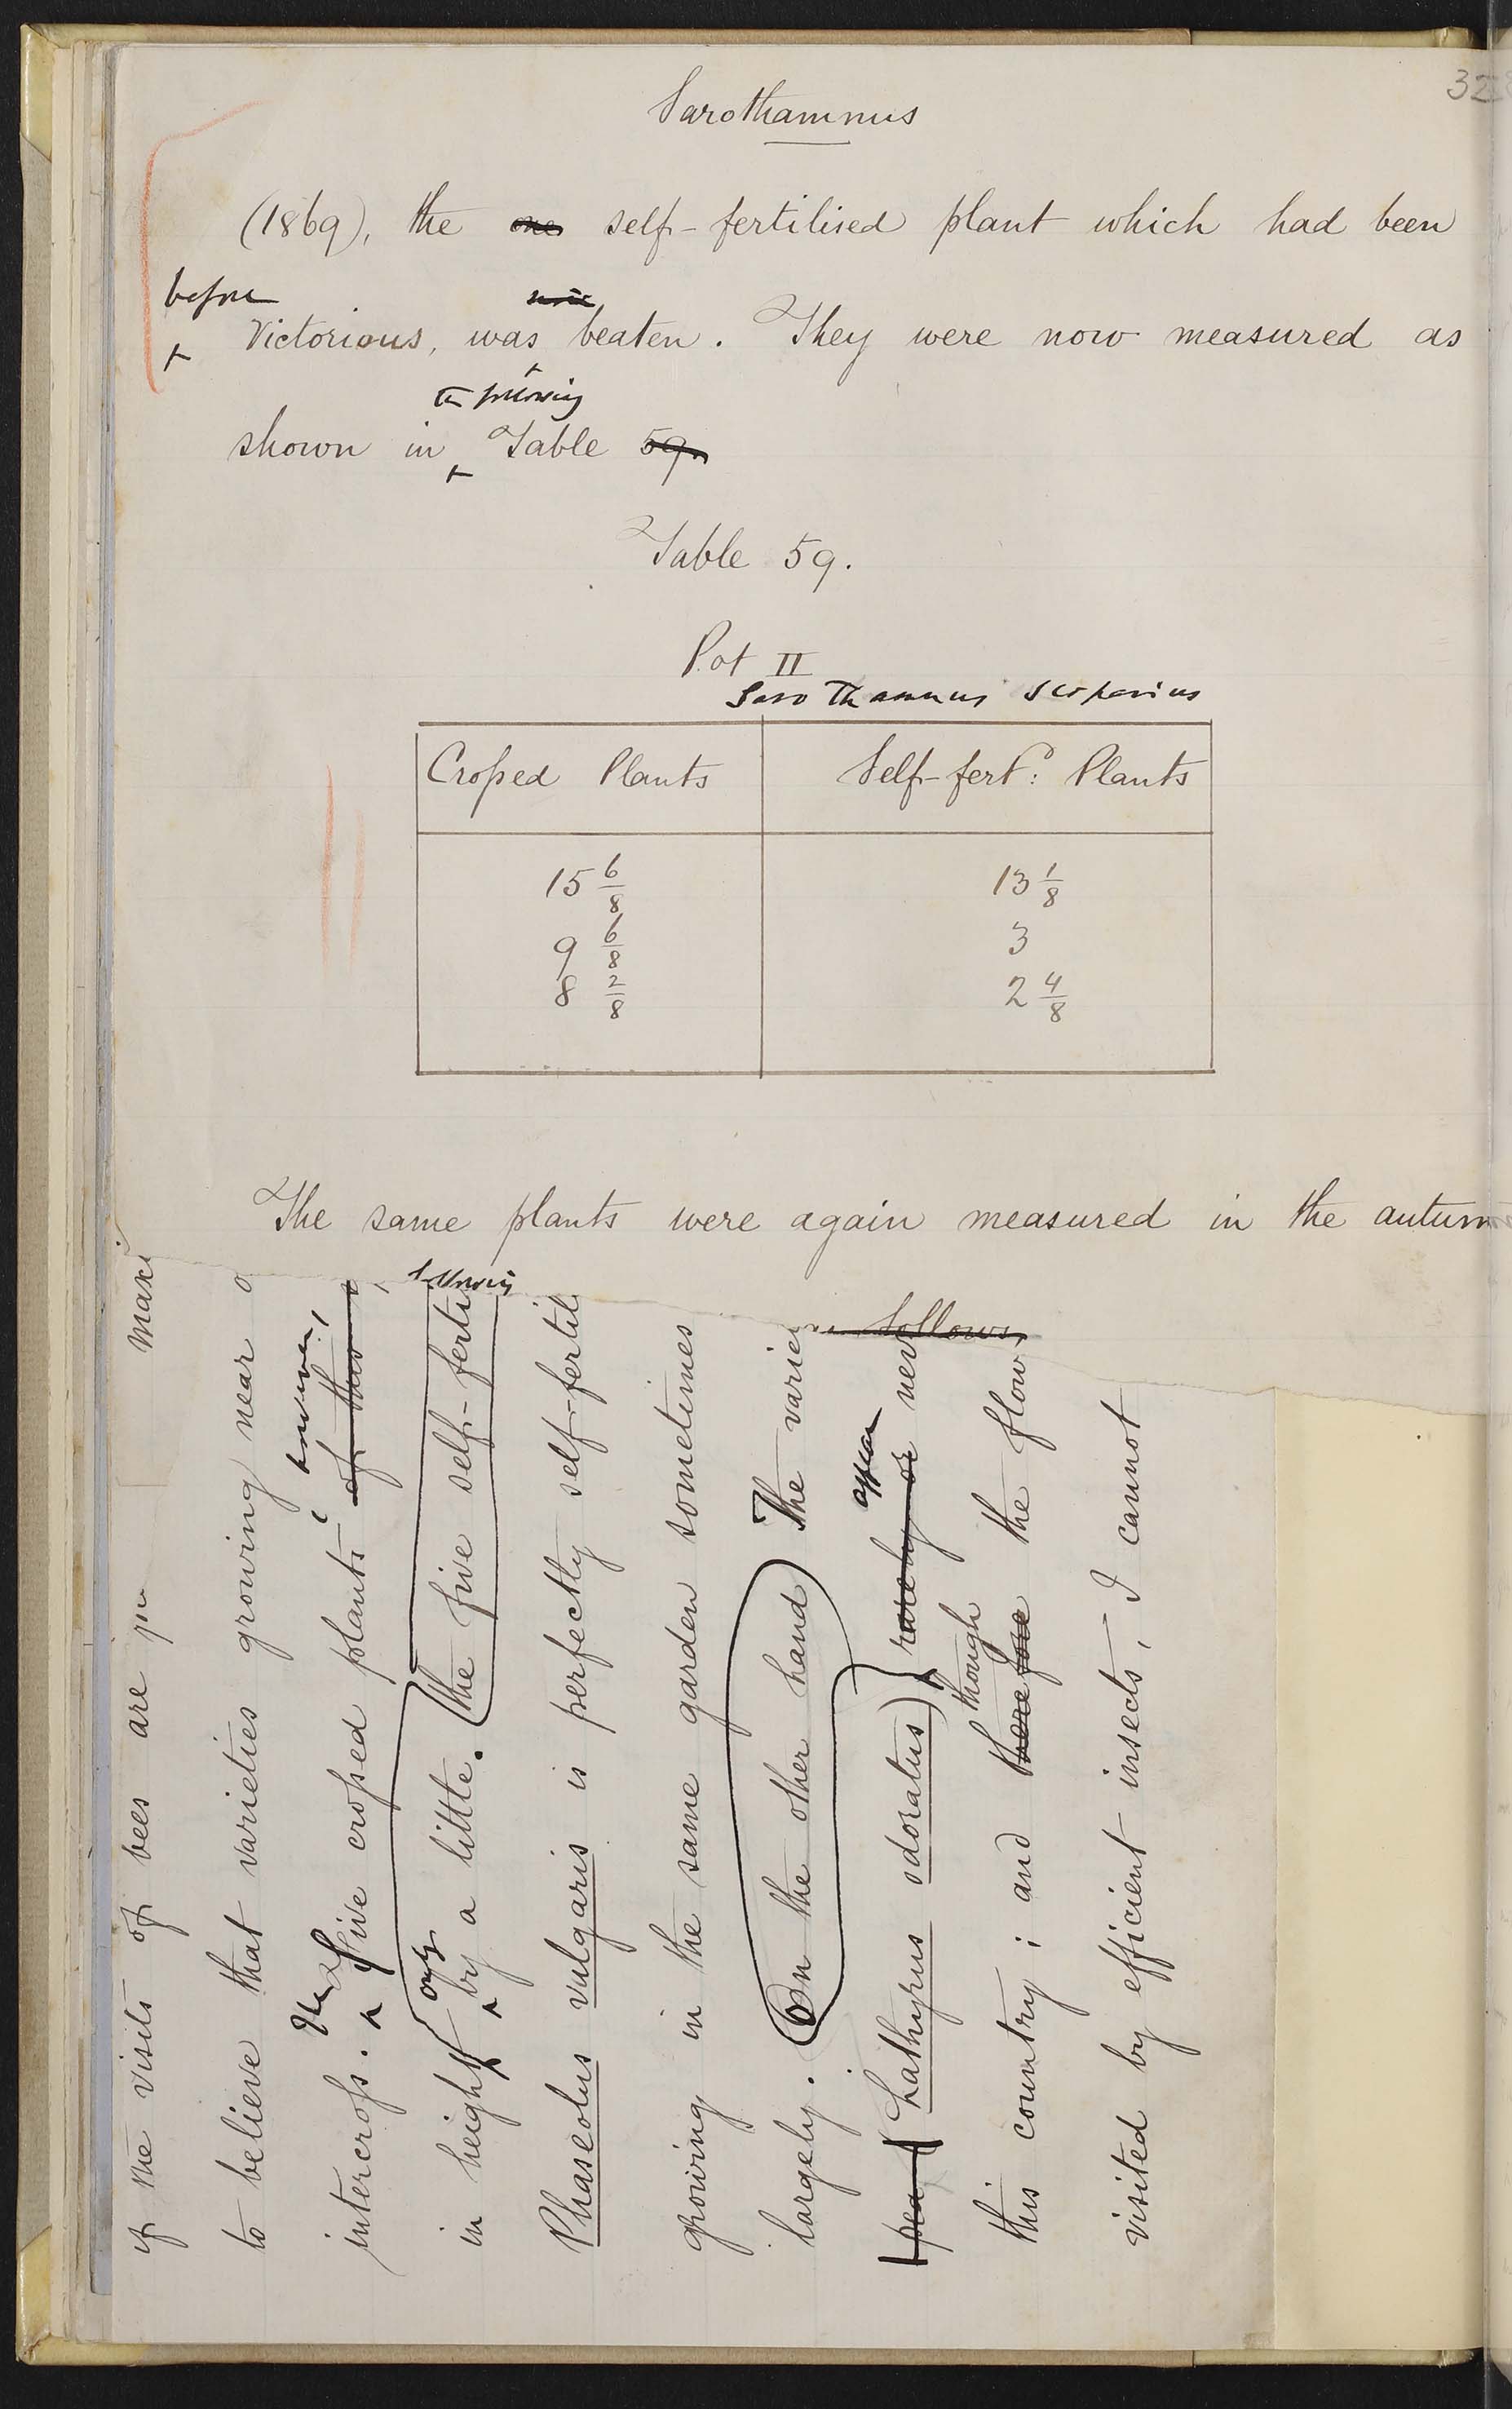 32
Sarothamnus
(1869), the one self-fertilised plant which had been
before
victorious, was beaten. They were now measured as
the following
shown in Table 59.
Table 59.
Pot II
Sarothamnus scoparius
Crossed Plants Self-fertd: Plants
15 6/8 13 1/8
9 6/8 3
8 2/8 2 4/8
The same plants were again measured in the autum
follows
of the visits of bees are
to believe that varieties growing near
intercross. The five crossed plants however, of this
following
in height only by a little. (The five self-ferti
Phaseolus vulgaris is perfectly self-fertil
growing in the same garden sometimes
largely. (On the other hand) The varie
appear
pea (Lathyrus odoratus) rarely or nev
though
this country; and therefore the flow
visited by efficient insects, I cannot